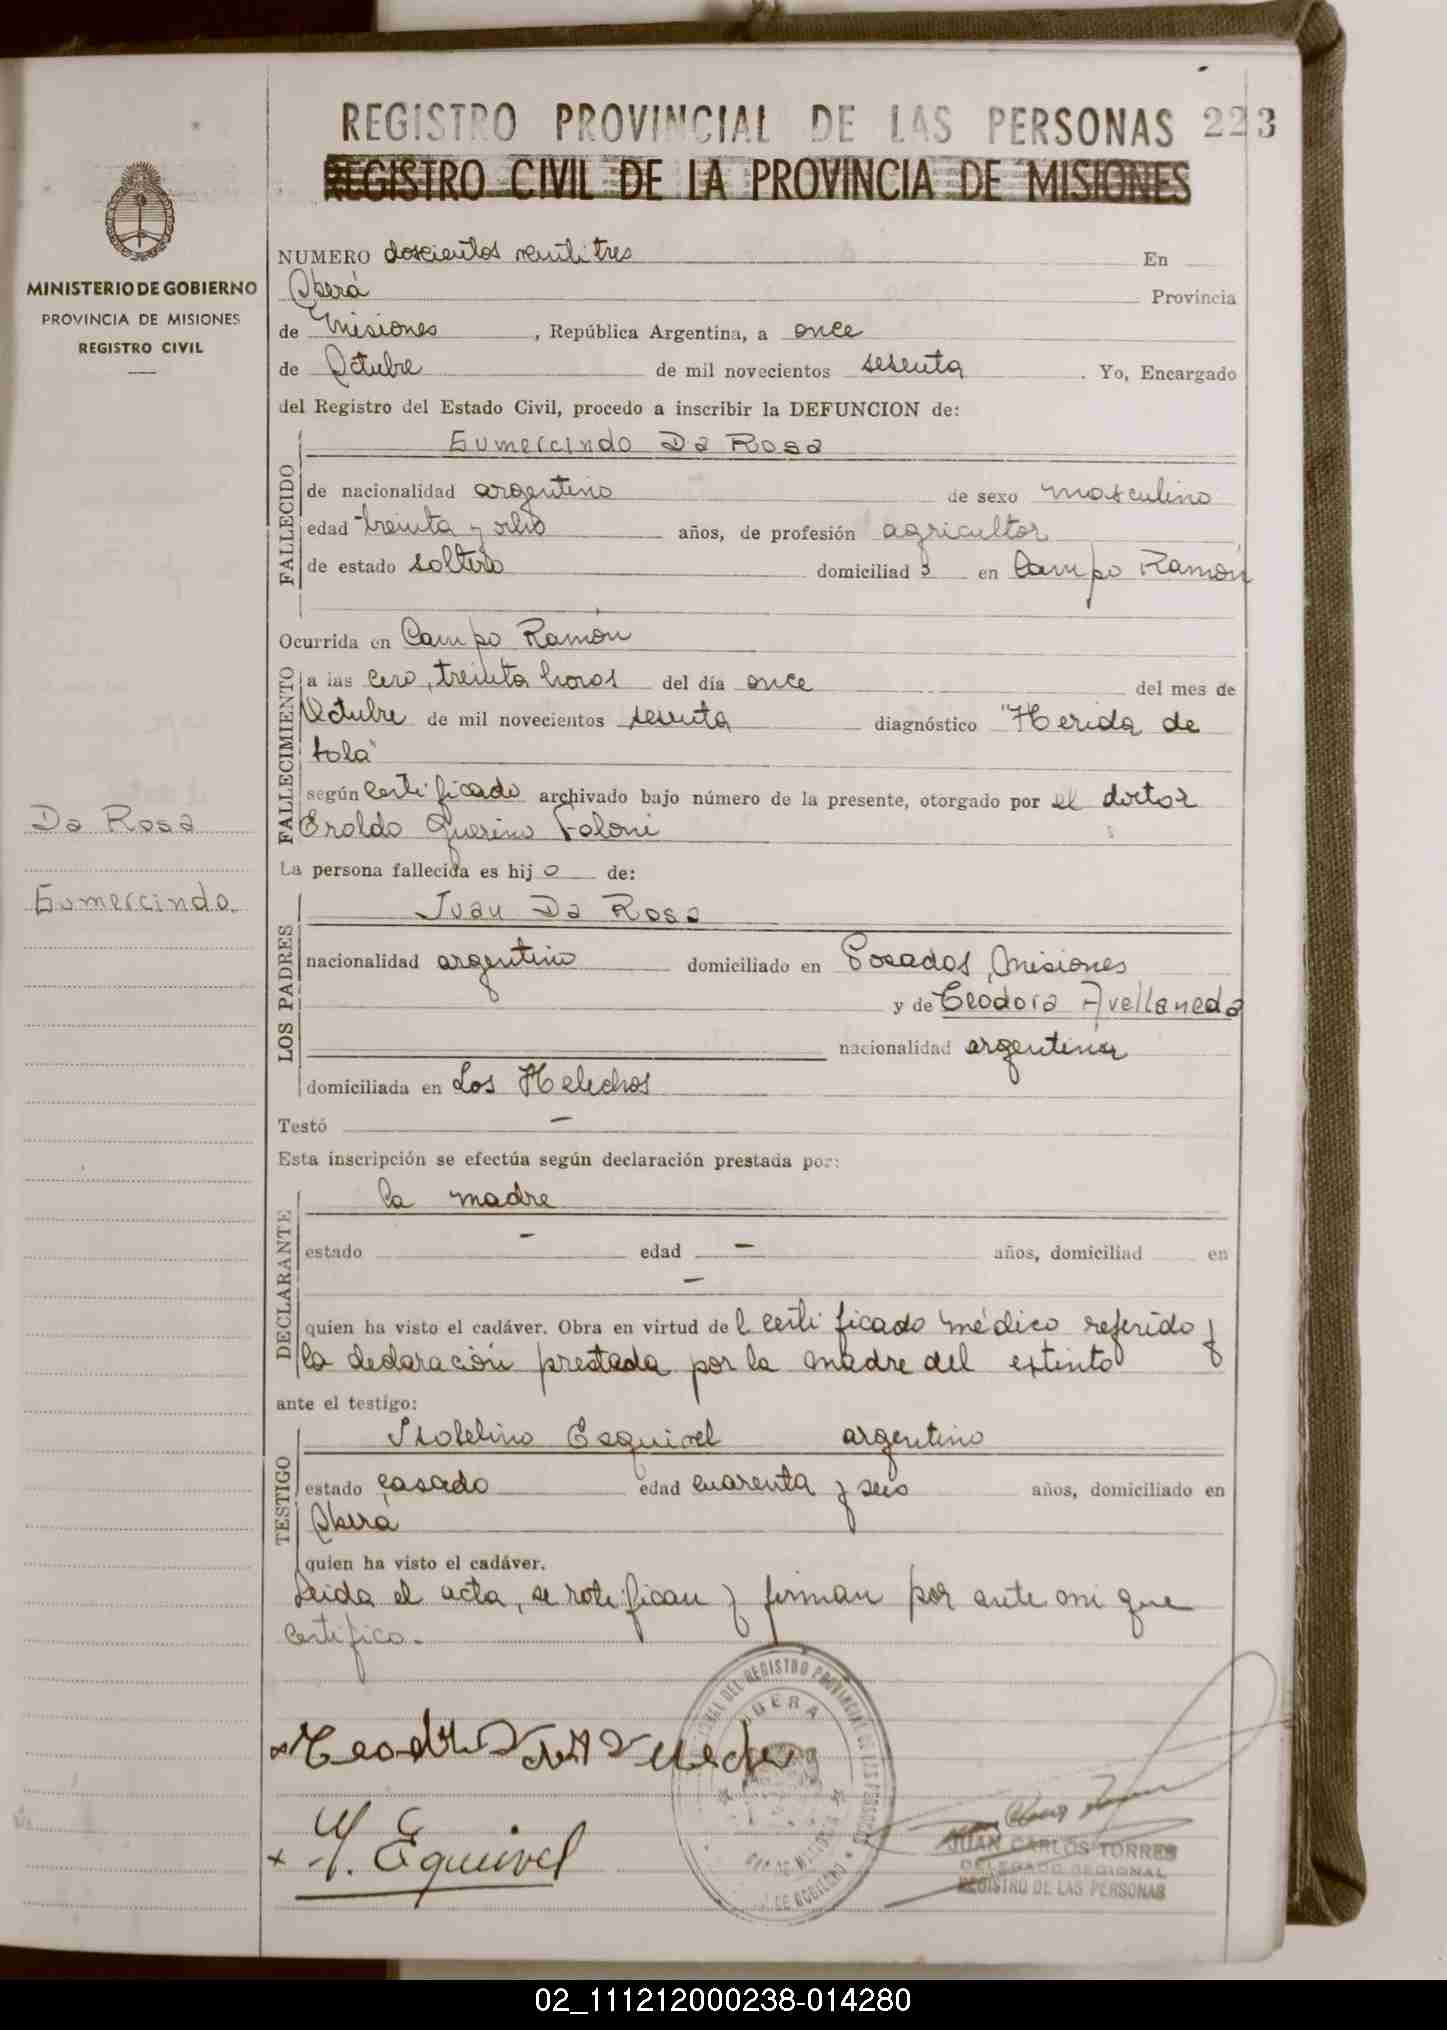 REGISTRO PROVINCIAL DE LAS PERSONAS 223
REGISTRO CIVIL DE LA PROVINCIA DE MISIONES
MINISTERIO DE GOBIERNO
PROVINCIA DE MISIONES
REGISTRO CIVIL
NUMERO doscientos veintitres En
Oberá Provincia
de Misiones, República Argentina, a once
de Octubre de mil novecientos sesenta. Yo, Encargado
del Registro del Estado Civil, procedo a inscribir la DEFUNCION de:
FALLECIDO
Gumercindo Da Rosa
de nacionalidad argentino de sexo masculino
edad treinta y ocho años, de profesión agricultor
de estado soltero domiciliad o en Campo Ramón
Ocurrida en Campo Ramón
FALLECIMIENTO
a las cero, treinta horas del día once del mes de
Octubre de mil novecientos sesenta diagnóstico "Herida de
bala"
según certificado archivado bajo número de la presente, otorgado por el doctor
Eroldo Querino
Da Rosa
Gumercindo.
La persona fallecida es hijo de:
LOS PADRES
Juan Da Rosa
nacionalidad argentino domiciliado en Posadas, Misiones
y de Teodora Avellaneda
nacionalidad argentina
domiciliada en Los Helechos
Testó —
Esta inscripción se efectúa según declaración prestada por:
DECLARANTE
la madre
estado — edad — años, domiciliad en
—
quien ha visto el cadáver. Obra en virtud del certificado médico referido y
la declaración prestada por la madre del extinto
ante el testigo:
TESTIGO
Esquivel argentino
estado casado edad cuarenta y seis años, domiciliado en
Oberá
quien ha visto el cadáver.
Leida el acta, se ratifican y firman por ante mi que
certifico.-
JUAN CARLOS TORRES
DELEGADO REGIONAL
REGISTRO DE LAS PERSONAS
02_111212000238-014280